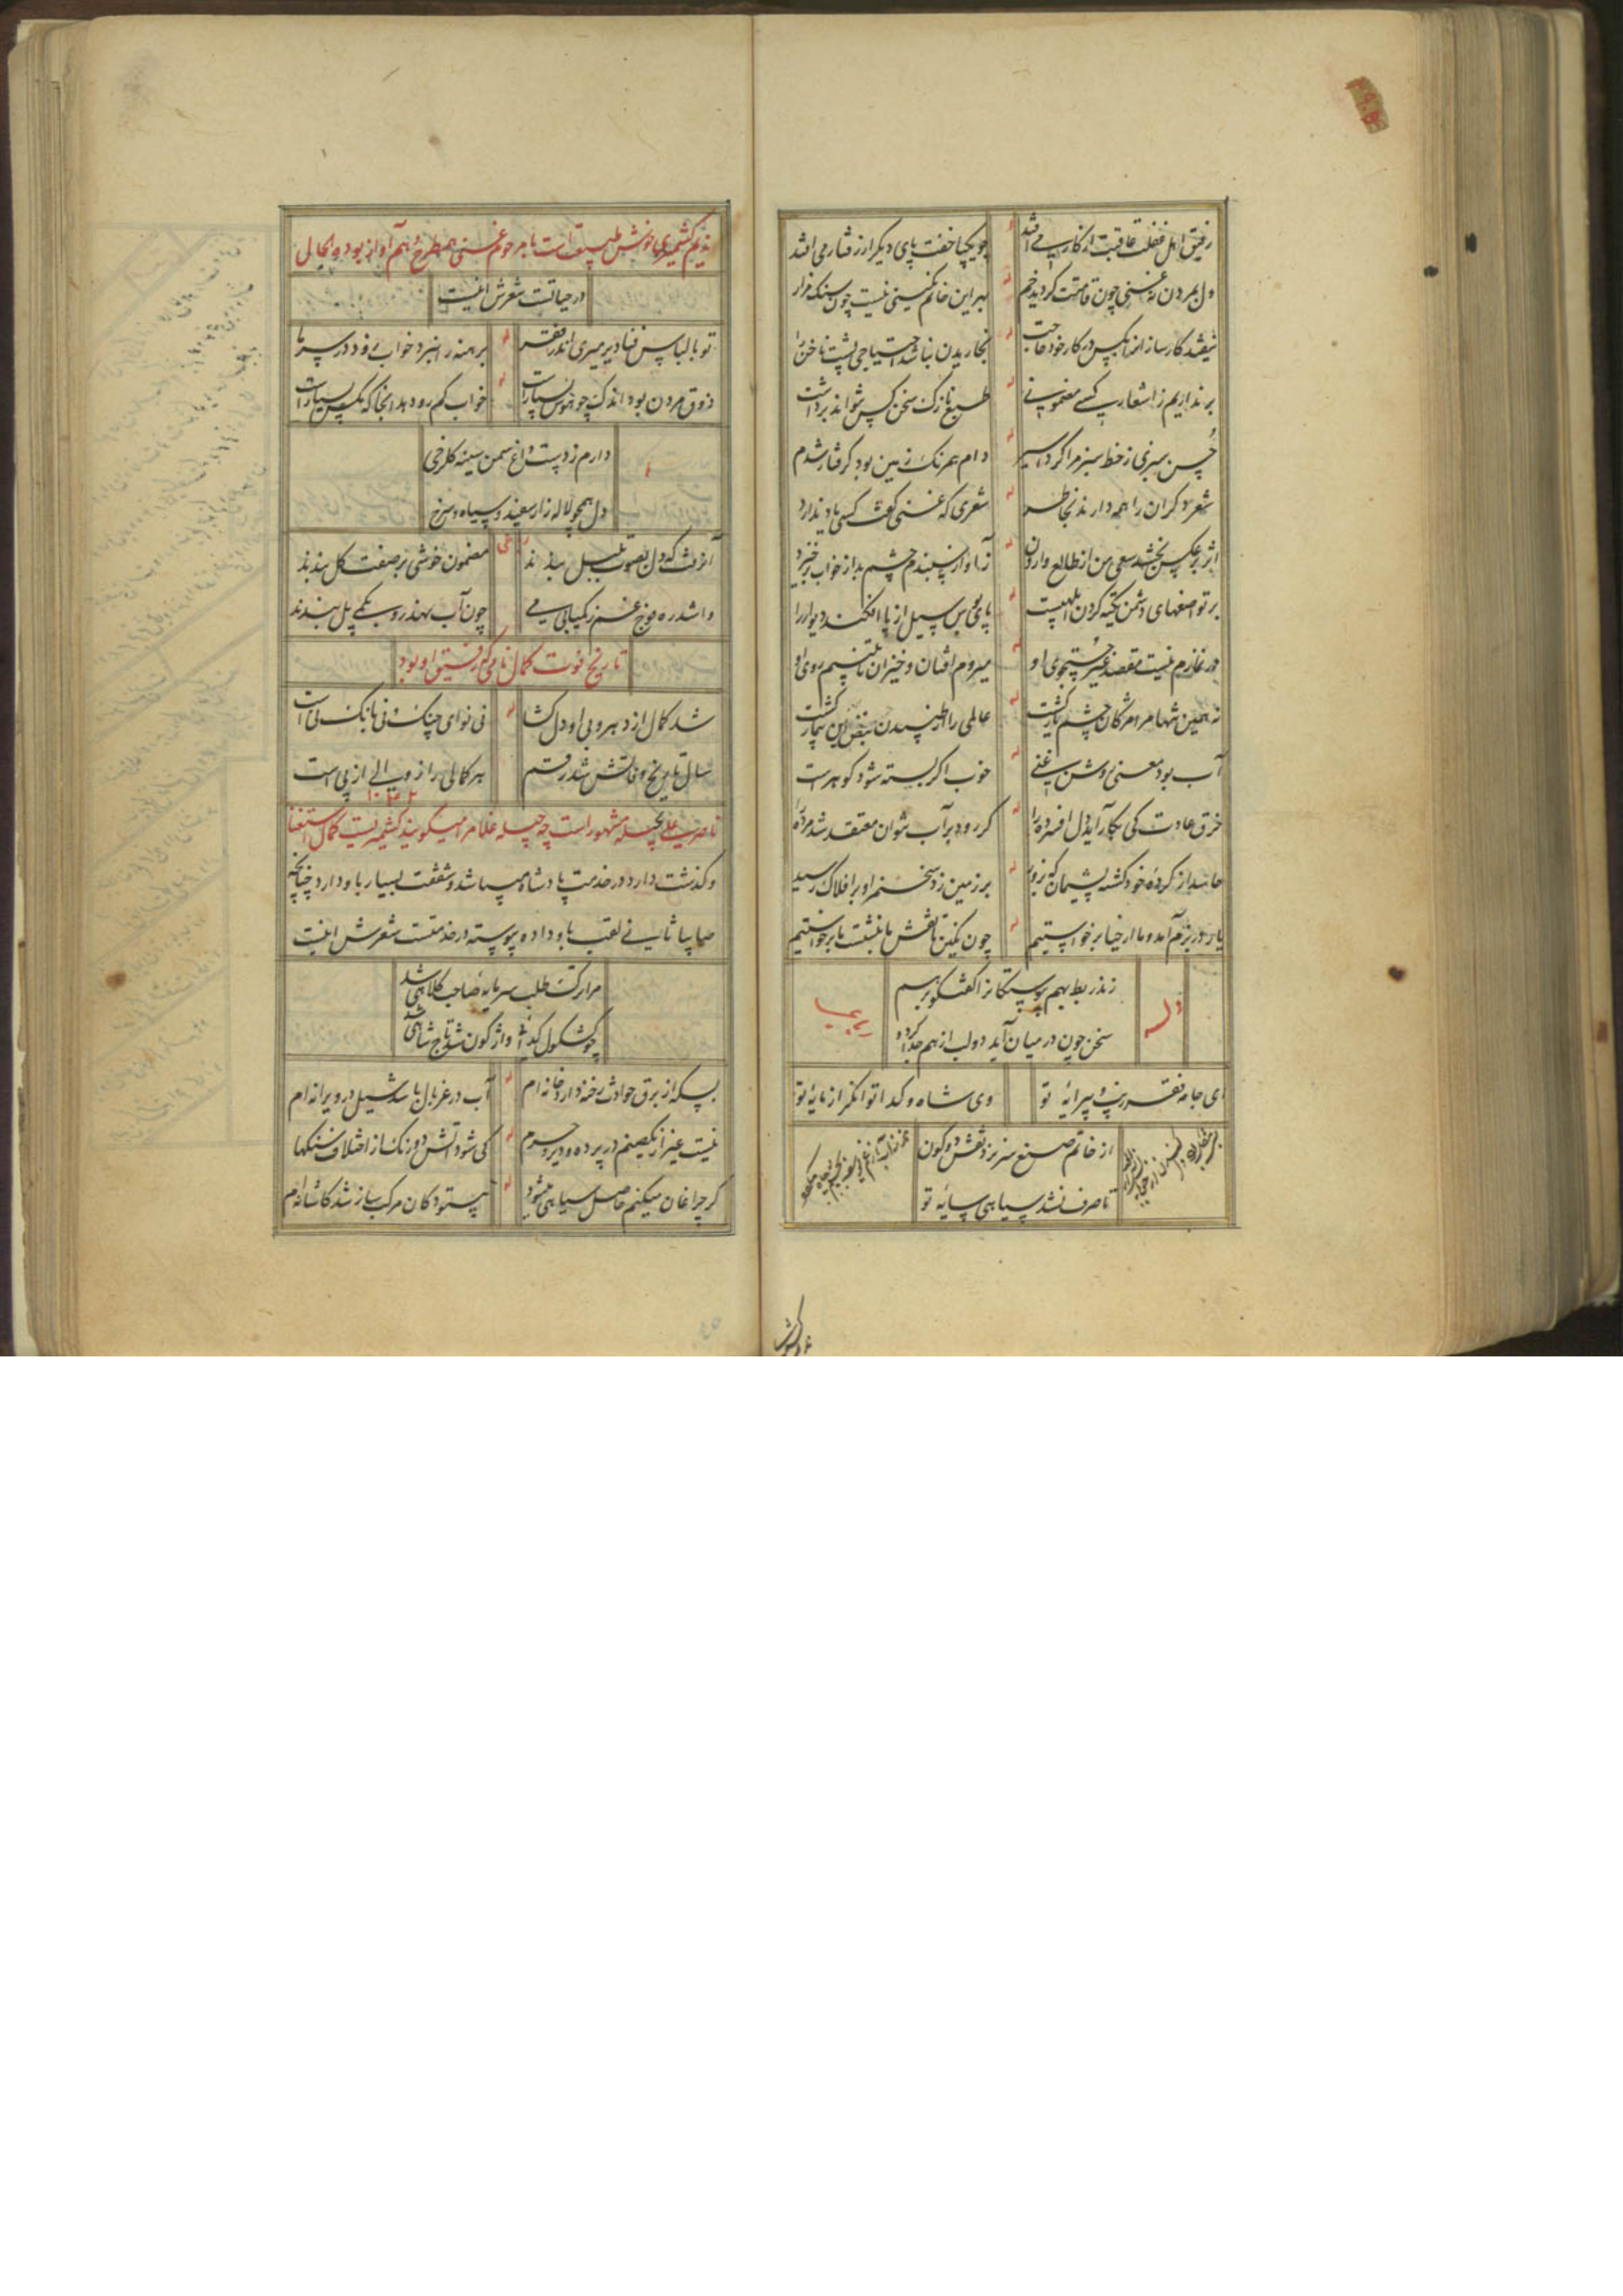 رفیق اهل غفلت عاقبت از کار می افتد
چو یکپا خفت پای دیگر از رفتار می افتد
دل بمردن نه غنی چون قامتت گردید خم
بهر این خاتم نگینی نیست چون سنک مزار
نیفتد کارساز انرا بکس در کار خود حاجت
بخاریدن نباشد احتیاجی پشت ناخن را
برنداریم ز اشعار کسی مضمونی
طبع نازک سخن کس نتواند برداشت
حسن سبزی ز خط سبز مرا کرد اسیر
دام همرنک زمین بود گرفتار شدم
شعر دگران را همه دارند بخاطر
شعری که غنی گفت کسی یاد ندارد
اثر برعکس بخشد سعی من از طالع وارون
ز آواز سپندم چشم بد از خواب برخیزد
بر تواضعهای دشمن تکیه کردن ابلهیست
پای بوس سیل از پا افکند دیوار را
در نمازم نیست مقصد غیر جستجوی او
میروم افتان و خیزان تا ببینم روی او
نه همین تنها مرا مژگان چشم یار کشت
عالمی را از تپیدن نبض این بیمار کشت
آب بود معنی روشن غنی
خوب اگر بسته شود گوهرست
خرق عادت کی بکار آید دل افسرده را
گر رود بر آب نتوان معتقد شد مرده را
بر زمین زد سخنم او بر افلاک رسید
یار در بزم آمد و ما از حیا برخواستیم
چون نگین تا نقش ما بنشست ما برخواستیم
وله
زند ربط بهم پیوستگانرا گفتگو برهم
سخن چون در میان آید دو لب از هم جدا گردد
رباعی
ای جامه فقر زیب و پیرایه تو
وی شاه و گدا توانگر از مایه تو
از خاتم صنع سر نزد نقش دو کون
تا صرف نشد سیاهی سایه تو
ندیم کشمیری خوش طبیعت است با مرحوم غنی همطرح و هم آواز بوده و الحال
در حیاتست شعرش اینست
تو با لباس فنا دیر میری اندر فقر
برهنه را نبرد خواب زود در سرما
ذوق مردن بود اندک چو هوس بسیارست
خواب کم رو دهد آنجا که مگس بسیارست
دارم ز دست داغ سمن سینه گلرخی
دل همچو لاله زار سفید و سیاه و سرخ
رباعی
آنرفت که دل بصوت بلبل بندند
مضمون خوشی بر صفت گل بندند
واشد ره موج غم ز کمیابی می
چون آب بهند رو کمی پل بندند
تاریخ فوت کمال نامی که رفیق او بود
شد کمال از دهر و بی او دل کشا
نی نوای چنک و نی بانک نی است
سال تاریخ وفاتش شد رقم
هر کمالی را زوالی از پی است
ناصر علی بچیله مشهور است چه چیله غلام را میگویند کشمیریست کمال استغنا
و گذشت دارد در خدمت پادشاه میباشد و شفقت بسیار باو دارد چنانچه
صاییا ثانی لقب باو داده پیوسته در خدمتست شعرش اینست
مرا ترک طلب سرمایه صاحب کلاهی شد
چو کشکول گدا واژگون شد تاج شاهی شد
بسکه از برق حوادث رخنه دارد خانه ام
آب در غربال باشد سیل در ویرانه ام
نیست غیر از یکصنم در پرده دیر و حرم
کی شود آتش دو رنک از اختلاف سنکها
گر چراغان میکنم حاصل سیاهی میشود
دکان مرکب ساز شد کاشانه ام